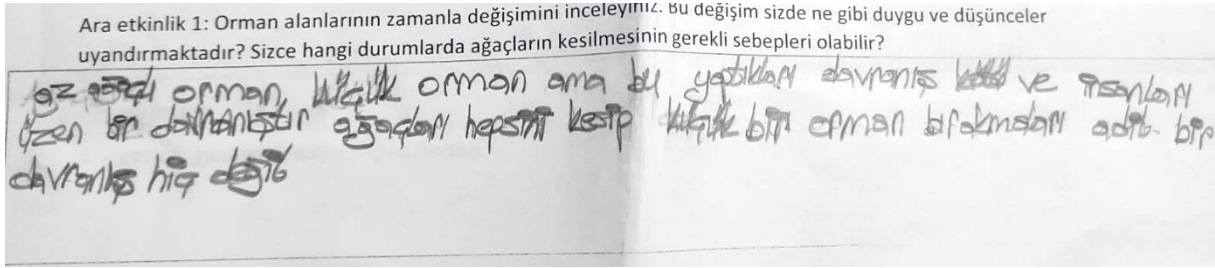 Ara etkinlik 1: Orman alanlarının zamanla değişimini inceleyiniz. Bu değişim sizde ne gibi duygu ve düşünceler
uyandırmaktadır? Sizce hangi durumlarda ağaçların kesilmesinin gerekli sebepleri olabilir?
az ağaçlı orman, küçük orman ama bu yaptıkları davranış ve insanları
üzen bir davranıştır ağaçları hepsini kesip küçük bir orman bırakmaları adil bir
davranış hiç değil